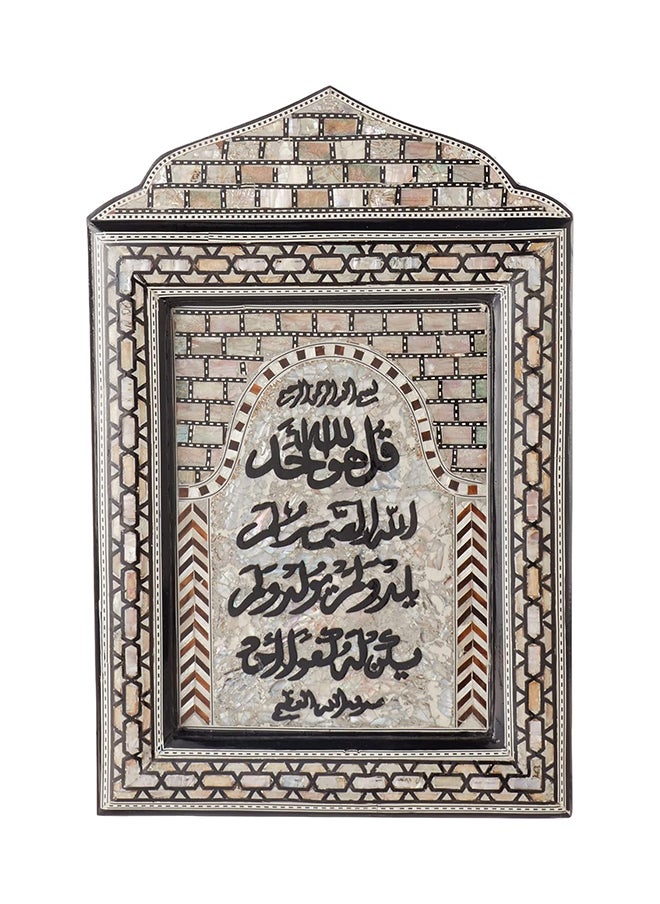 بسم الله الرحمن الرحيم
قل هو الله احد
الله الصمد لم
يلد ولم يولد ولم
يكن له كفوا احد
صدق الله العظيم